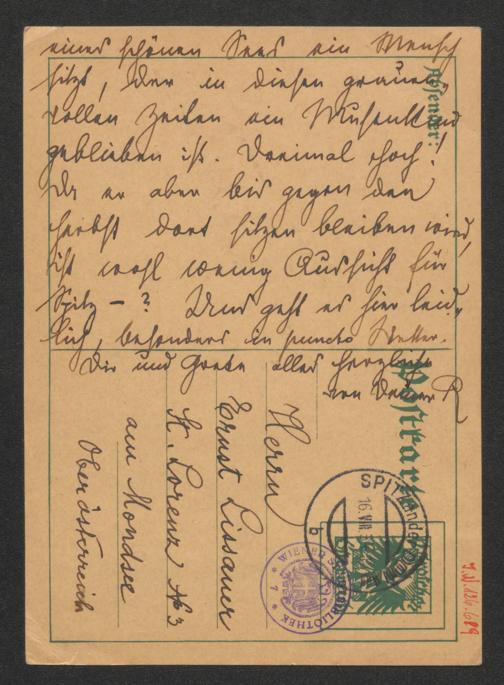 eines schönen Sees ein Mensch
sitzt, der in diesen grauen-
vollen Zeiten ein Musenkind
geblieben ist. Dreimal hoch!
Da er aber bis gegen den
Herbst dort sitzen bleiben wird,
ist wohl wenig Aussicht für
Spitz – ? Uns geht es hier leid-
lich, besonders in puncto Wetter.
Dir und Grete alles Herzliche
von Deiner R
Absender:
Postkarte
Herrn
Ernst Lissauer
St. Lorenz № 3
am Mondsee
Oberösterreich
SPITZ
16.VII.3
b
WIENER STADTBIBLIOTHEK
* 1 *